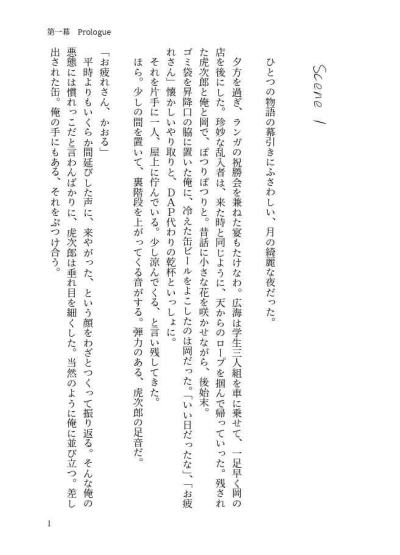 第一幕　Prologue
Scene 1
ひとつの物語の幕引きにふさわしい、月の綺麗な夜だった。
夕方を過ぎ、ランガの祝勝会を兼ねた宴もたけなわ。広海は学生三人組を車に乗せて、一足早く岡の
店を後にした。珍妙な乱入者は、来た時と同じように、天からのロープを掴んで帰っていった。残され
た虎次郎と俺と岡で、ぽつりぽつりと。昔話に小さな花を咲かせながら、後始末。
ゴミ袋を昇降口の脇に置いた俺に、冷えた缶ビールをよこしたのは岡だった。「いい日だったな」、「お疲
れさん」懐かしいやり取りと、ＤＡＰ代わりの乾杯といっしょに。
それを片手に一人、屋上に佇んでいる。少し涼んでくる、と言い残してきた。
ほら。少しの間を置いて、裏階段を上がってくる音がする。弾力のある、虎次郎の足音だ。
「お疲れさん、かおる」
平時よりもいくらか間延びした声に、来やがった、という顔をわざとつくって振り返る。そんな俺の
悪態には慣れっこだと言わんばかりに、虎次郎は垂れ目を細くした。当然のように俺に並び立つ。差し
出された缶。俺の手にもある、それをぶつけ合う。
1